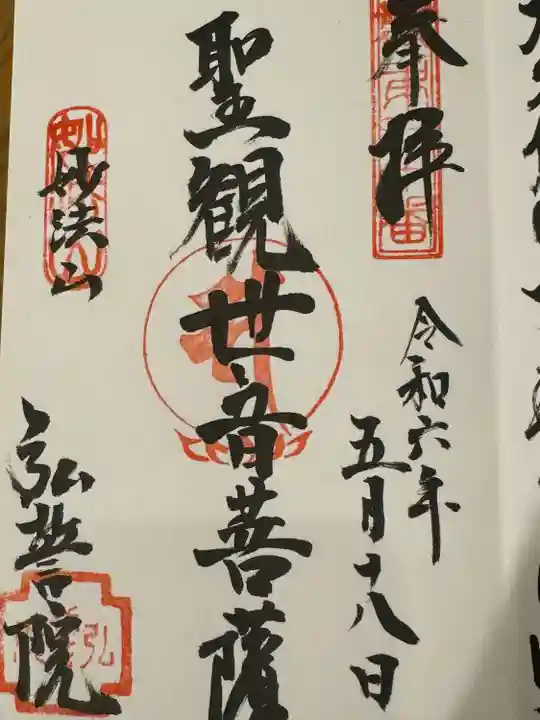 奉拝
令和六年
五月十八日
聖観世音菩薩
妙法山
弘誓院
弘